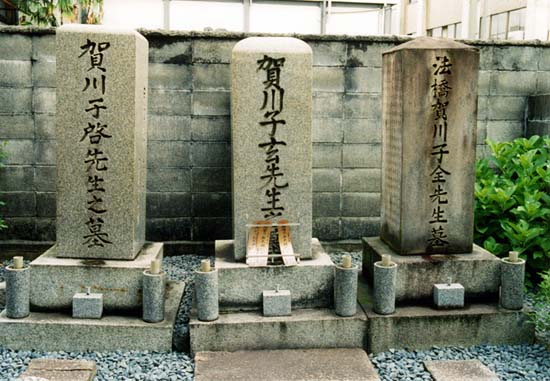 法橋賀川子全先生墓
賀川子玄先生
賀川子啓先生之墓